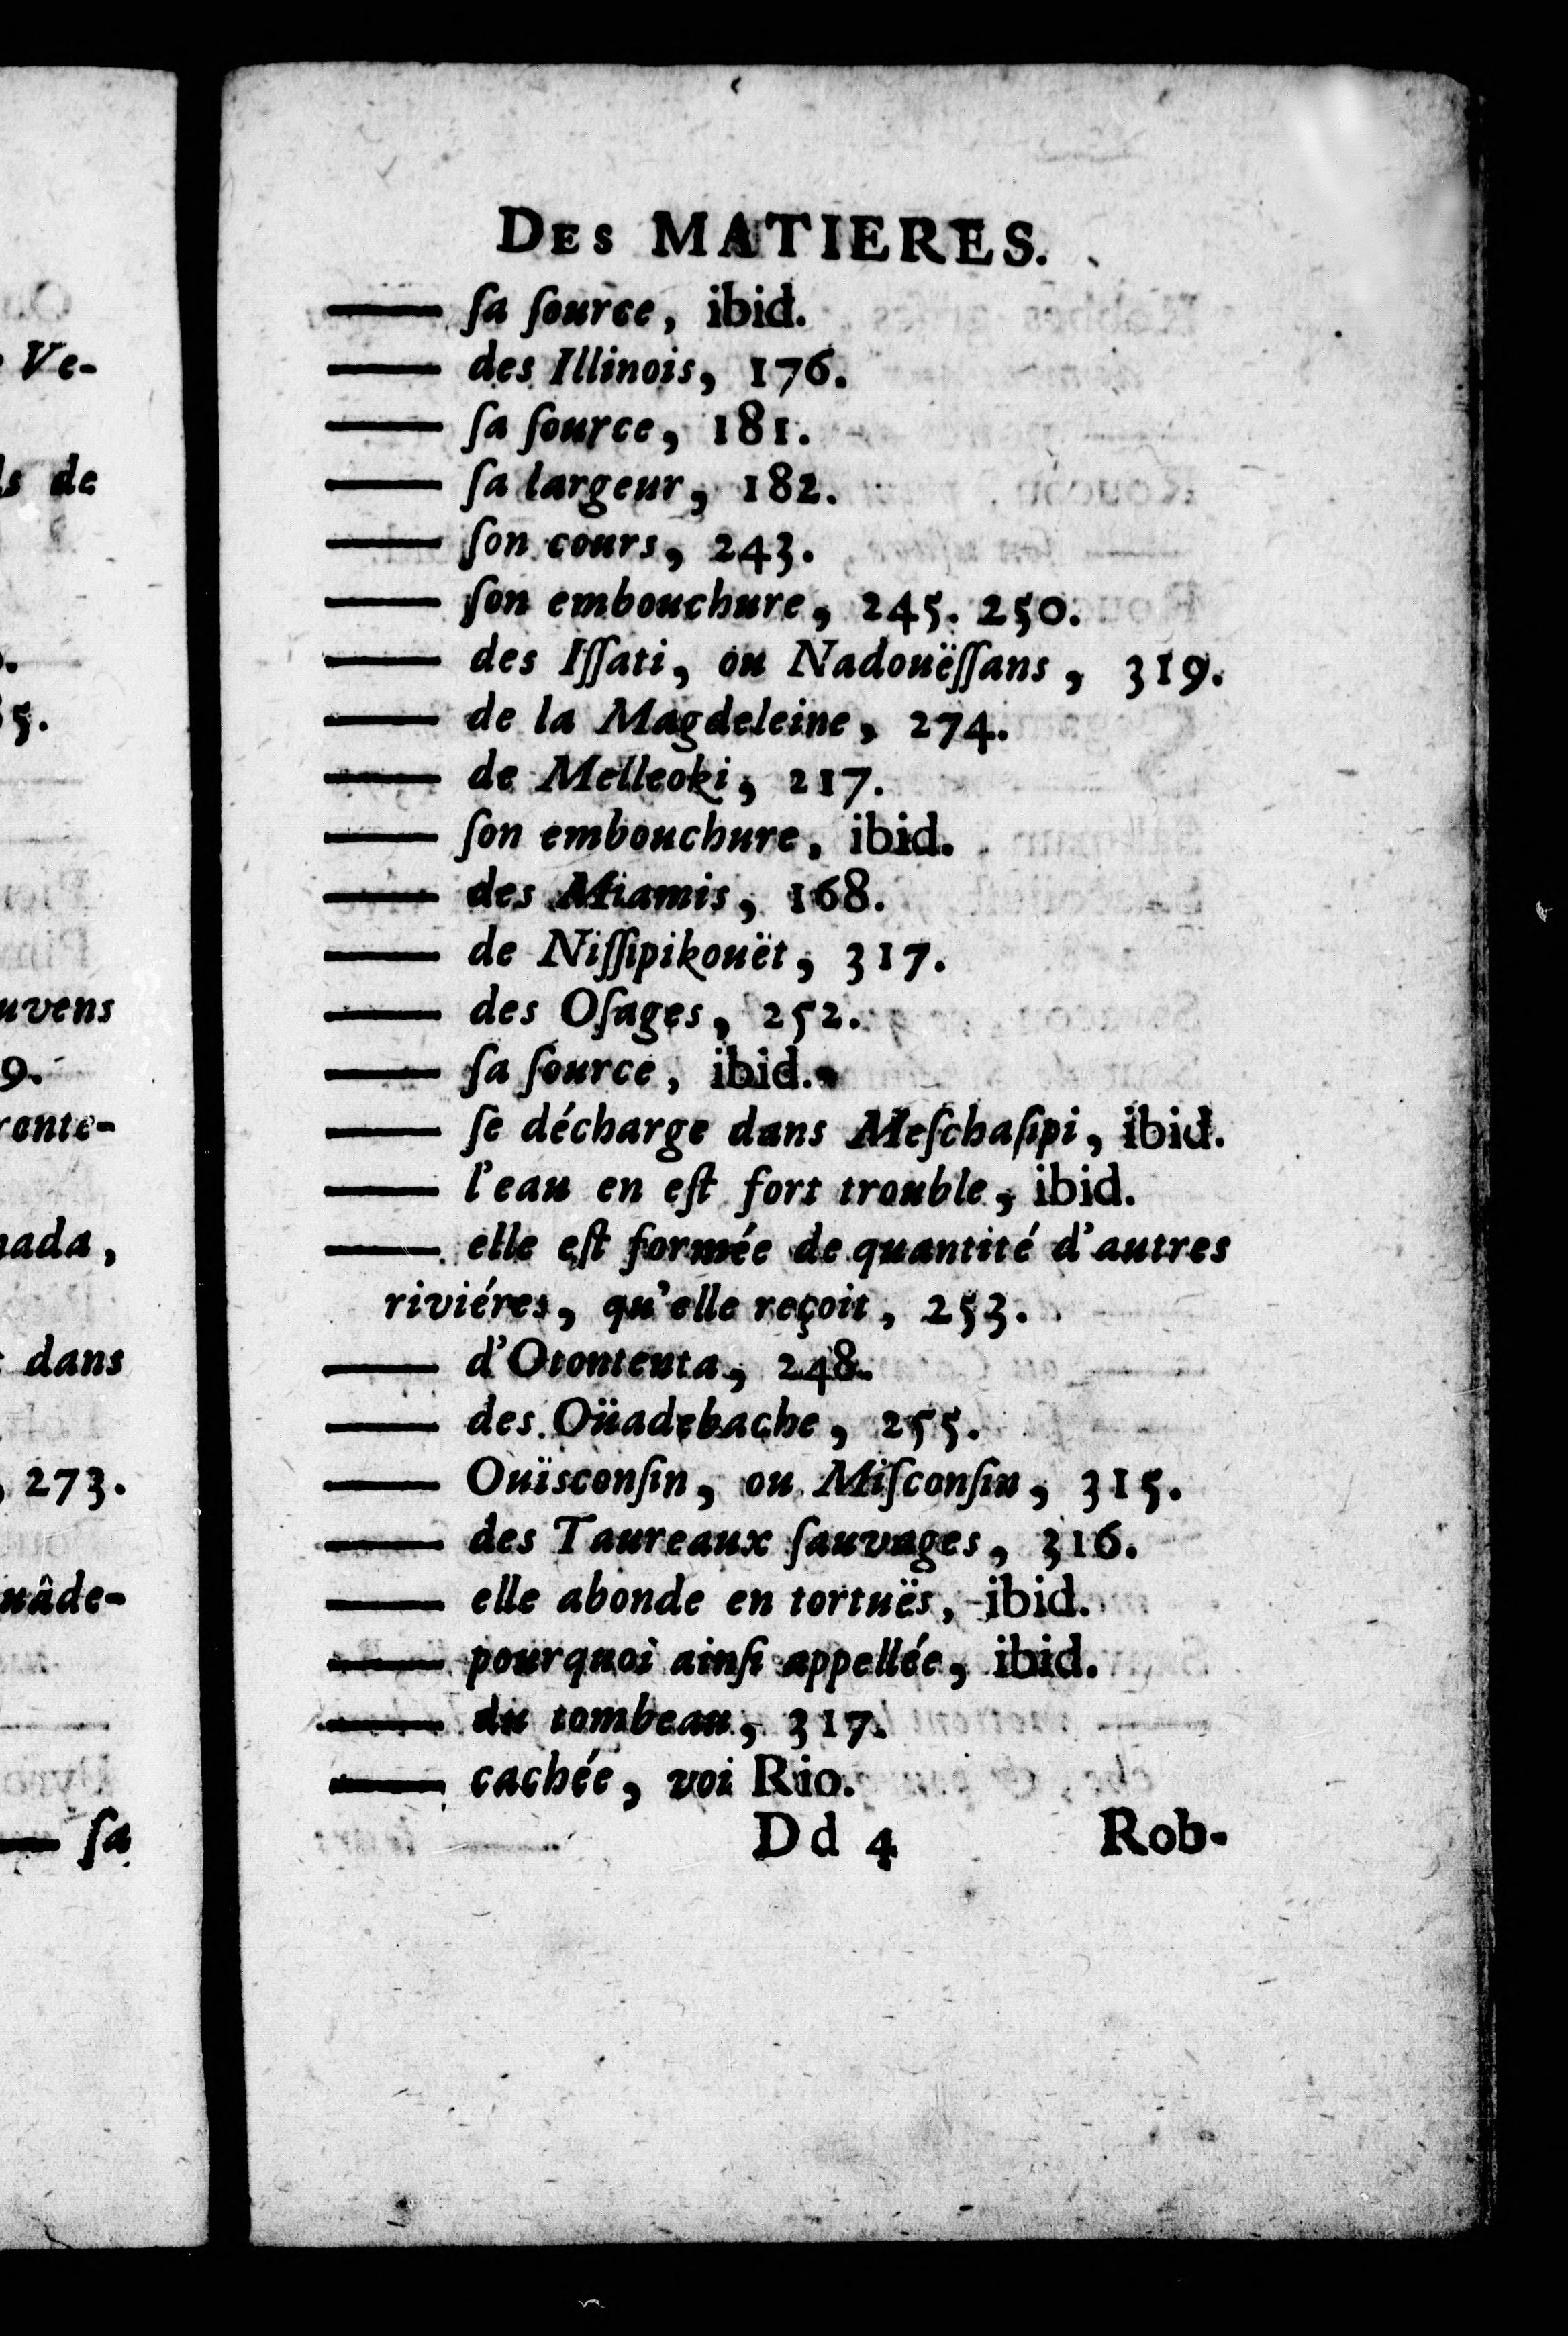 Ve-
de
5.
uvens
9.
ronte-
nada,
dans
273.
uâde-
—— ſa
DES MATIERES.
—— ſa ſource, ibid.
—— des Illinois, 176.
—— ſa ſource, 181.
—— ſa largeur, 182.
—— ſon cours, 243.
—— ſon embouchure, 245. 250.
—— des Iſſati, ou Nadouëſſans, 319.
—— de la Magdeleine, 274.
—— de Melleoki, 217.
—— ſon embouchure, ibid.
—— des Miamis, 168.
—— de Niſſipikouët, 317.
—— des Oſages, 252.
—— ſa ſource, ibid.
—— ſe décharge dans Meſchaſipi, ibid.
—— l'eau en eſt fort trouble, ibid.
—— elle eſt formée de quantité d'autres
riviéres, qu'elle reçoit, 253.
—— d'Otontenta, 248.
—— des Oüadebache, 255.
—— Ouïsconſin, ou Miſconſin, 315.
—— des Taureaux ſauvages, 316.
—— elle abonde en tortuës, ibid.
—— pourquoi ainſi appellée, ibid.
—— du tombeau, 317.
—— cachée, voi Rio.
Dd 4 Rob-